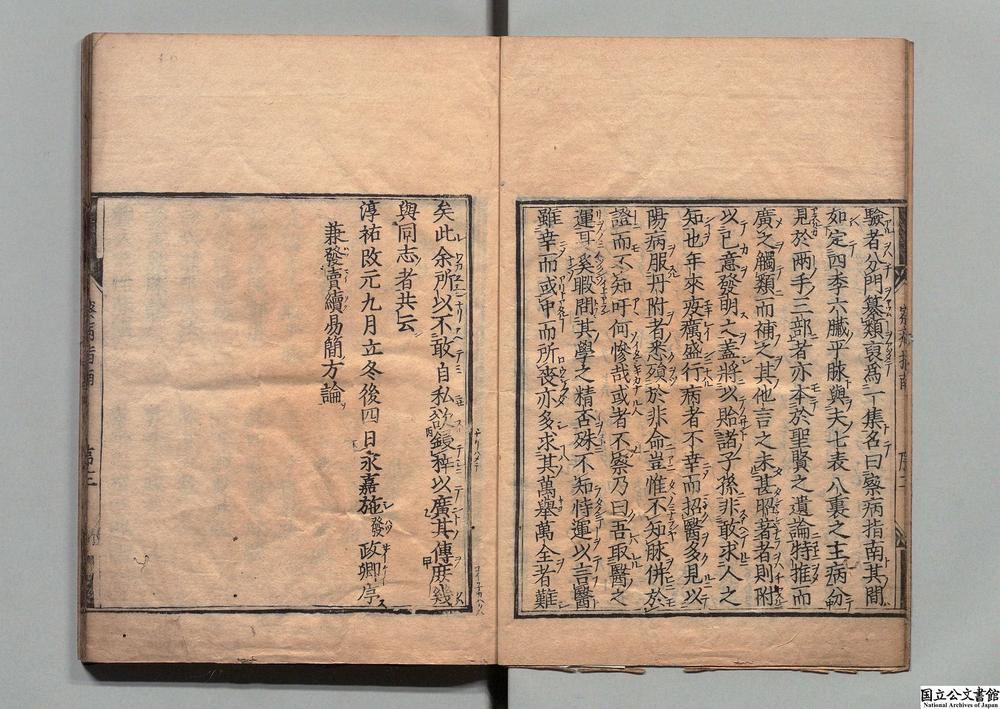 驗者分門纂類裒爲一集名曰察病指南其間
如定四季六臟平脉與夫七表八裏之主病分
見於兩手三部者亦本於聖賢之遺論特推而
廣之觸類而補之其他言之未甚昭著者則附
以己意發明之蓋將以貽諸子孫非敢求人之
知也年來疫癘盛行病者不幸而招醫多見以
陽病服丹附者悉殞於非命豈惟不知脉併於
證而不知吁何慘哉或者不察乃曰吾取醫之
運耳奚暇問其學之精否殊不知恃運以言醫
雖幸而或中而所喪亦多求其萬舉萬全者難
矣此余所以不敢自私欲鋟梓以廣其傳庶幾
與同志者共云
淳祐改元九月立冬後四日永嘉施發政卿序
兼發賣續易簡方論
察病指南
第三
国立公文書館
National Archives of Japan